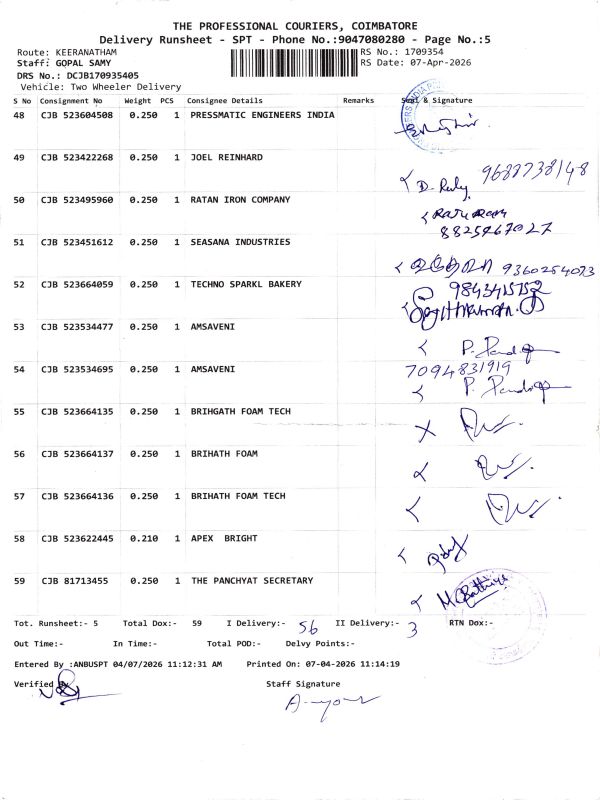 THE PROFESSIONAL COURIERS, COIMBATORE
Delivery Runsheet - SPT - Phone No.:9047080280 - Page No.:5
Route: KEERANATHAM RS No.: 1709354
Staff: GOPAL SAMY RS Date: 07-Apr-2026
DRS No.: DCJB170935405
Vehicle: Two Wheeler Delivery
S No Consignment No Weight PCS Consignee Details Remarks Seal & Signature
48 CJB 523604508 0.250 1 PRESSMATIC ENGINEERS INDIA
49 CJB 523422268 0.250 1 JOEL REINHARD
9688738148
50 CJB 523495960 0.250 1 RATAN IRON COMPANY
8825467027
51 CJB 523451612 0.250 1 SEASANA INDUSTRIES
9360254073
52 CJB 523664059 0.250 1 TECHNO SPARKL BAKERY
53 CJB 523534477 0.250 1 AMSAVENI
54 CJB 523534695 0.250 1 AMSAVENI 7094831919
55 CJB 523664135 0.250 1 BRIHGATH FOAM TECH
56 CJB 523664137 0.250 1 BRIHATH FOAM
57 CJB 523664136 0.250 1 BRIHATH FOAM TECH
58 CJB 523622445 0.210 1 APEX BRIGHT
59 CJB 81713455 0.250 1 THE PANCHYAT SECRETARY
Tot. Runsheet:- 5 Total Dox:- 59 I Delivery:- 56 II Delivery:- 3 RTN Dox:-
Out Time:- In Time:- Total POD:- Delvy Points:-
Entered By :ANBUSPT 04/07/2026 11:12:31 AM Printed On: 07-04-2026 11:14:19
Verified By Staff Signature